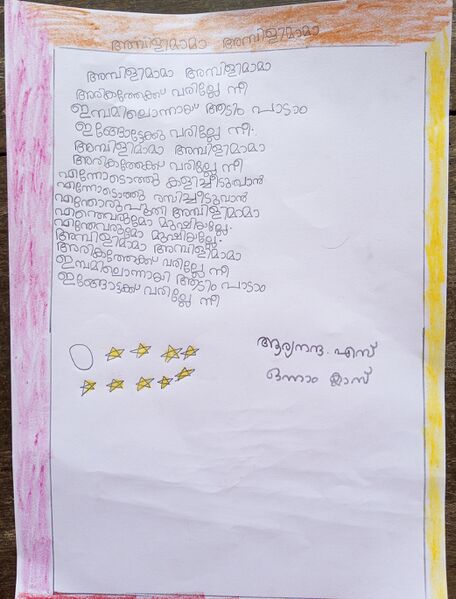 അമ്പിളിമാമാ അമ്പിളിമാമാ
അമ്പിളിമാമാ അമ്പിളിമാമാ
അരികത്തേക്ക് വരില്ലേ നീ
ഇമ്പമിലൊന്നായ് ആടിം പാടാം
ഇങ്ങോട്ടേക്കു വരില്ലേ നീ.
അമ്പിളിമാമാ അമ്പിളിമാമാ
അരികത്തേക്ക് വരില്ലേ നീ
എന്നോടൊത്തു കളിച്ചീടുവാൻ
എന്നോടൊത്തു രസിച്ചീടുവാൻ
അമ്പിളിമാമാ
എന്തേവരുമോ മുഷിയല്ലേ.
എന്തേവരുമോ മുഷിയല്ലേ.
അമ്പിളിമാമാ അമ്പിളിമാമാ
അരികത്തേക്ക് വരില്ലേ നീ
ഇമ്പമിലൊന്നായി ആടിം പാടാം
ഇങ്ങോട്ടേക്ക് വരില്ലേ നീ
ആര്യനന്ദ. എസ്
ഒന്നാം ക്ലാസ്